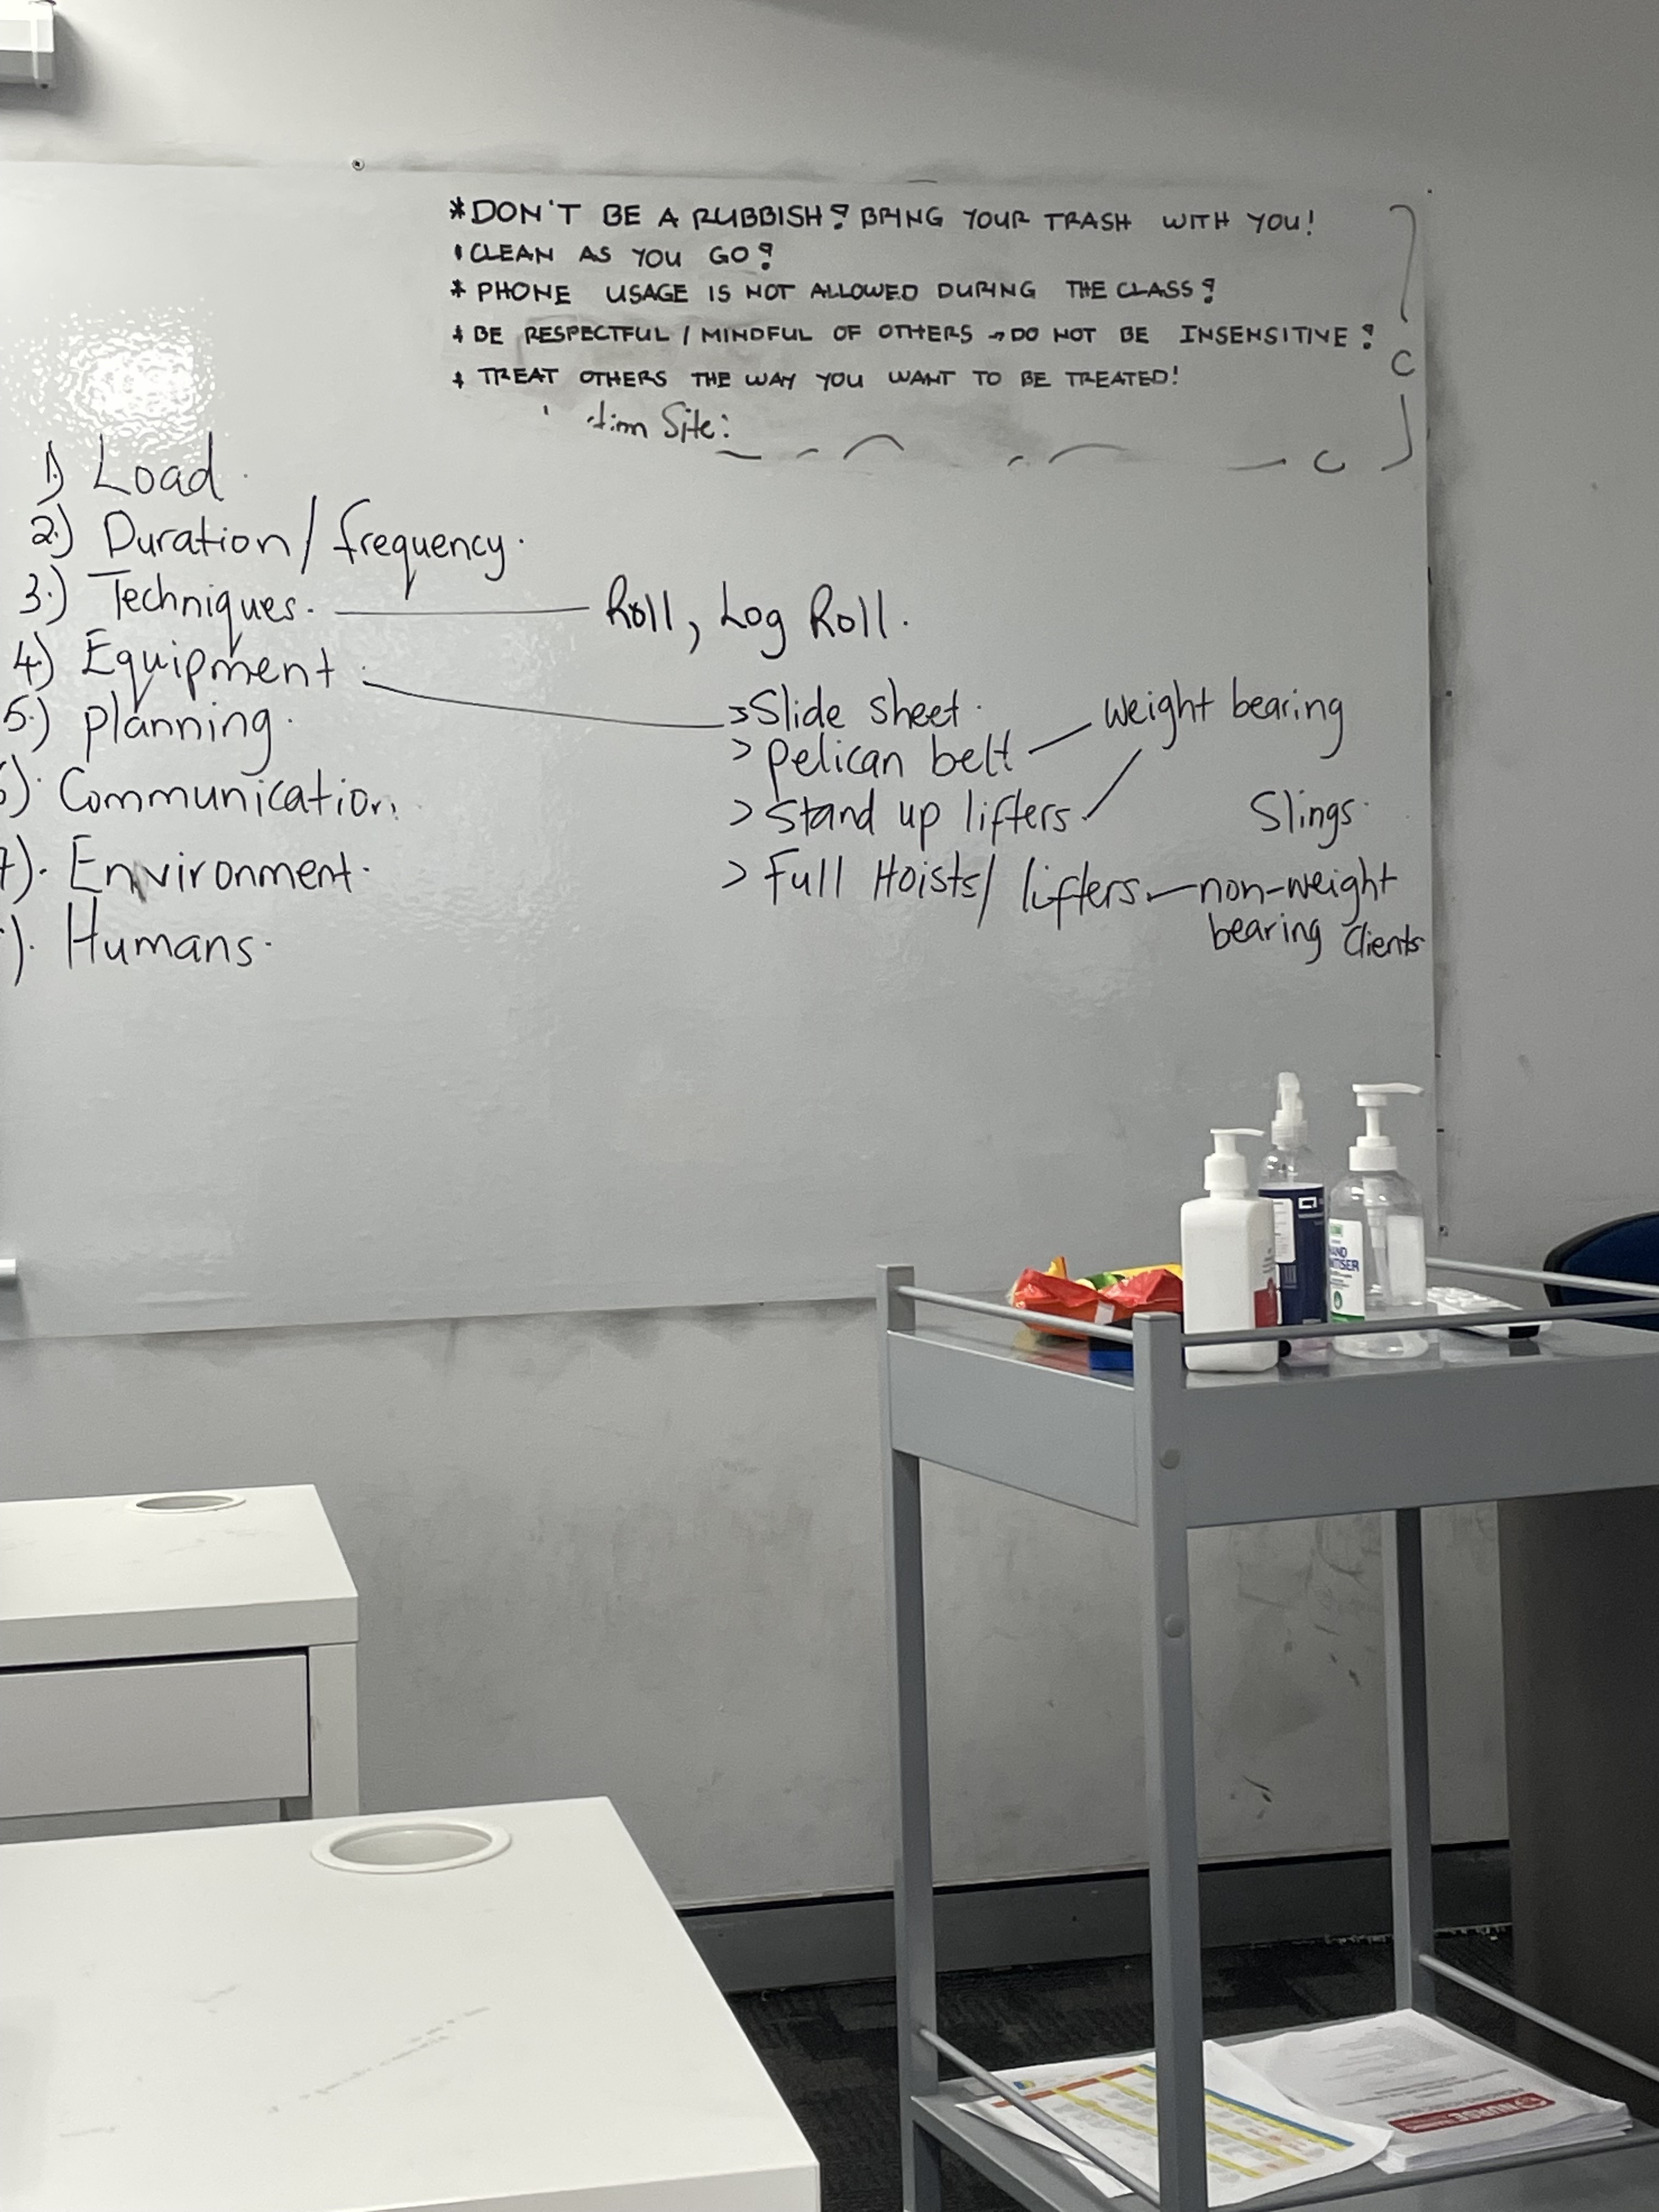 *DON'T BE A RUBBISH! BRING YOUR TRASH WITH YOU!
*CLEAN AS YOU GO!
* PHONE USAGE IS NOT ALLOWED DURING THE CLASS!
* BE RESPECTFUL / MINDFUL OF OTHERS → DO NOT BE INSENSITIVE!
* TREAT OTHERS THE WAY YOU WANT TO BE TREATED!
Site:
1) Load.
2.) Duration / frequency.
3.) Techniques. — Roll, Log Roll.
4.) Equipment
5.) planning.
). Communication.
7). Environment.
). Humans.
> Slide sheet.
> pelican belt — weight bearing
> Stand up lifters.
Slings.
> Full Hoists / lifters. — non-weight
bearing clients
HAND
NURSE